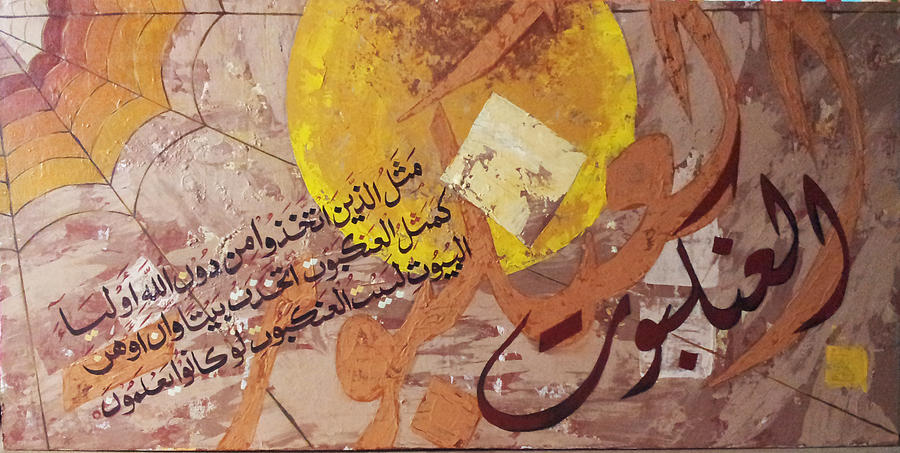 العنكبوت
مَثَلُ الذَين اتخذُوا من دُون اللَّه اوليَآ
كمثل العَنكبوت اتخذت بيتا وان اوهن
البيوت لبيت العنكبوت لو كانوُا يَعْلمُون